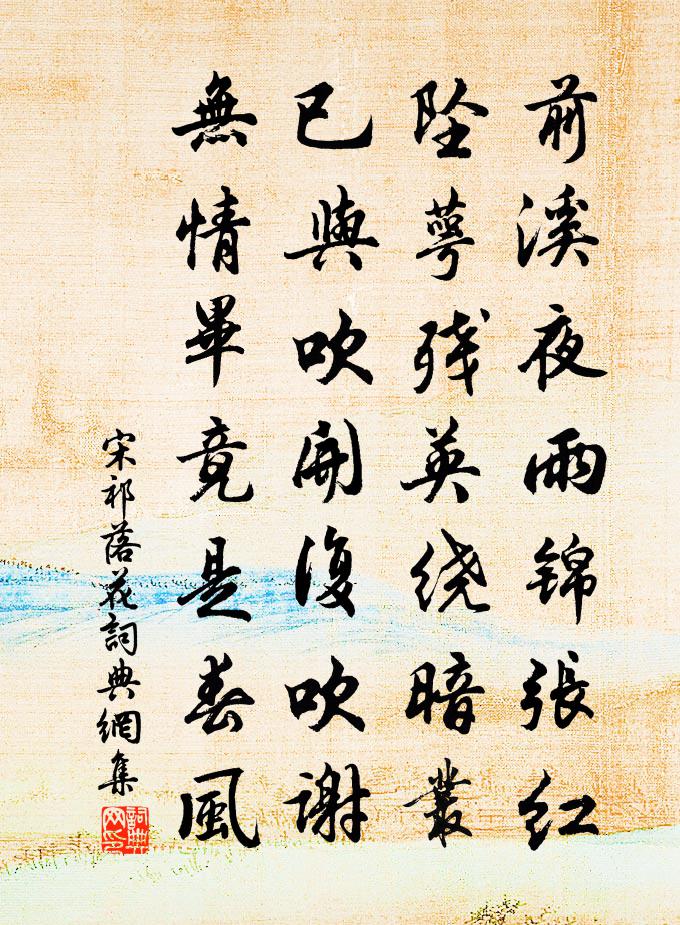 前溪夜雨锦張红
坠萼残英绕暗叢
已與吹開復吹谢
無情畢竟是春風
宋祁落花詞典網集
詞典网印